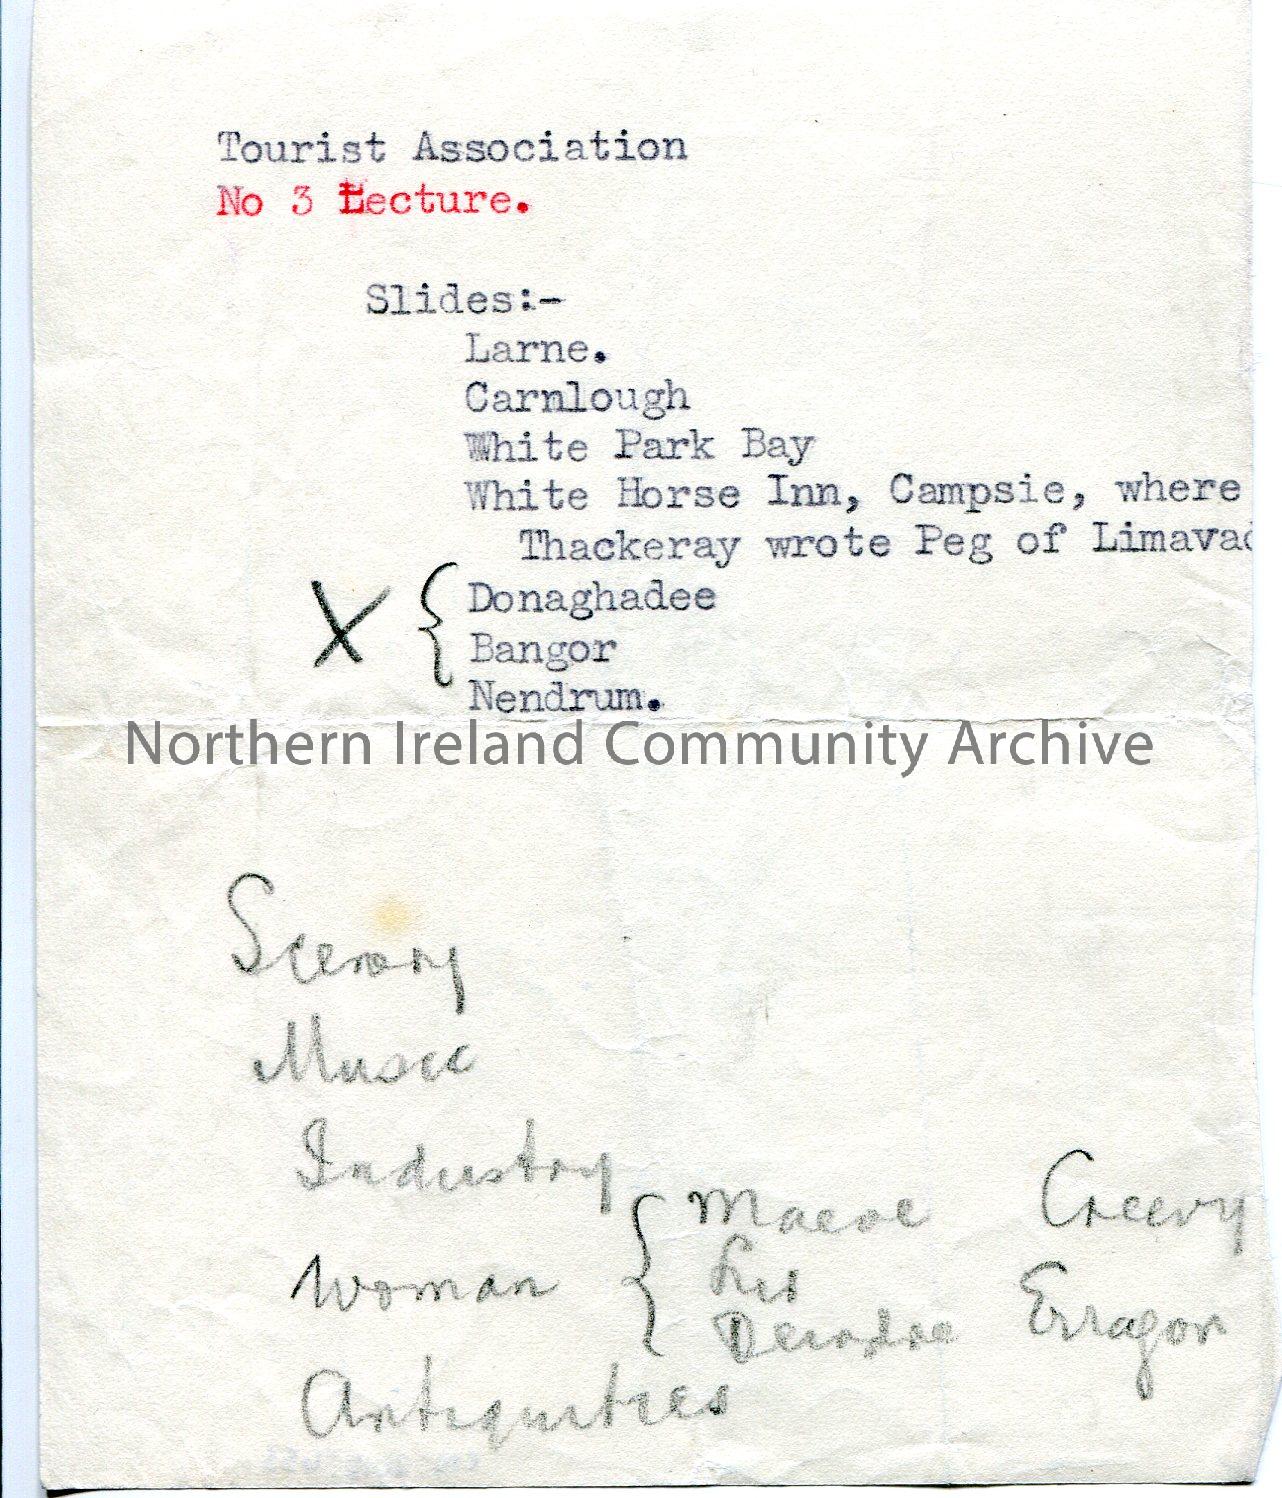 Tourist Association
No 3 Lecture.
Slides:-
Larne.
Carnlough
White Park Bay
White Horse Inn, Campsie, where
Thackeray wrote Peg of Limavad
X { Donaghadee
Bangor
Nendrum.
Northern Ireland Community Archive
Scenery
Music
Industry
Woman { Maeve Creevy
Deirdre Erragon
Antiquities